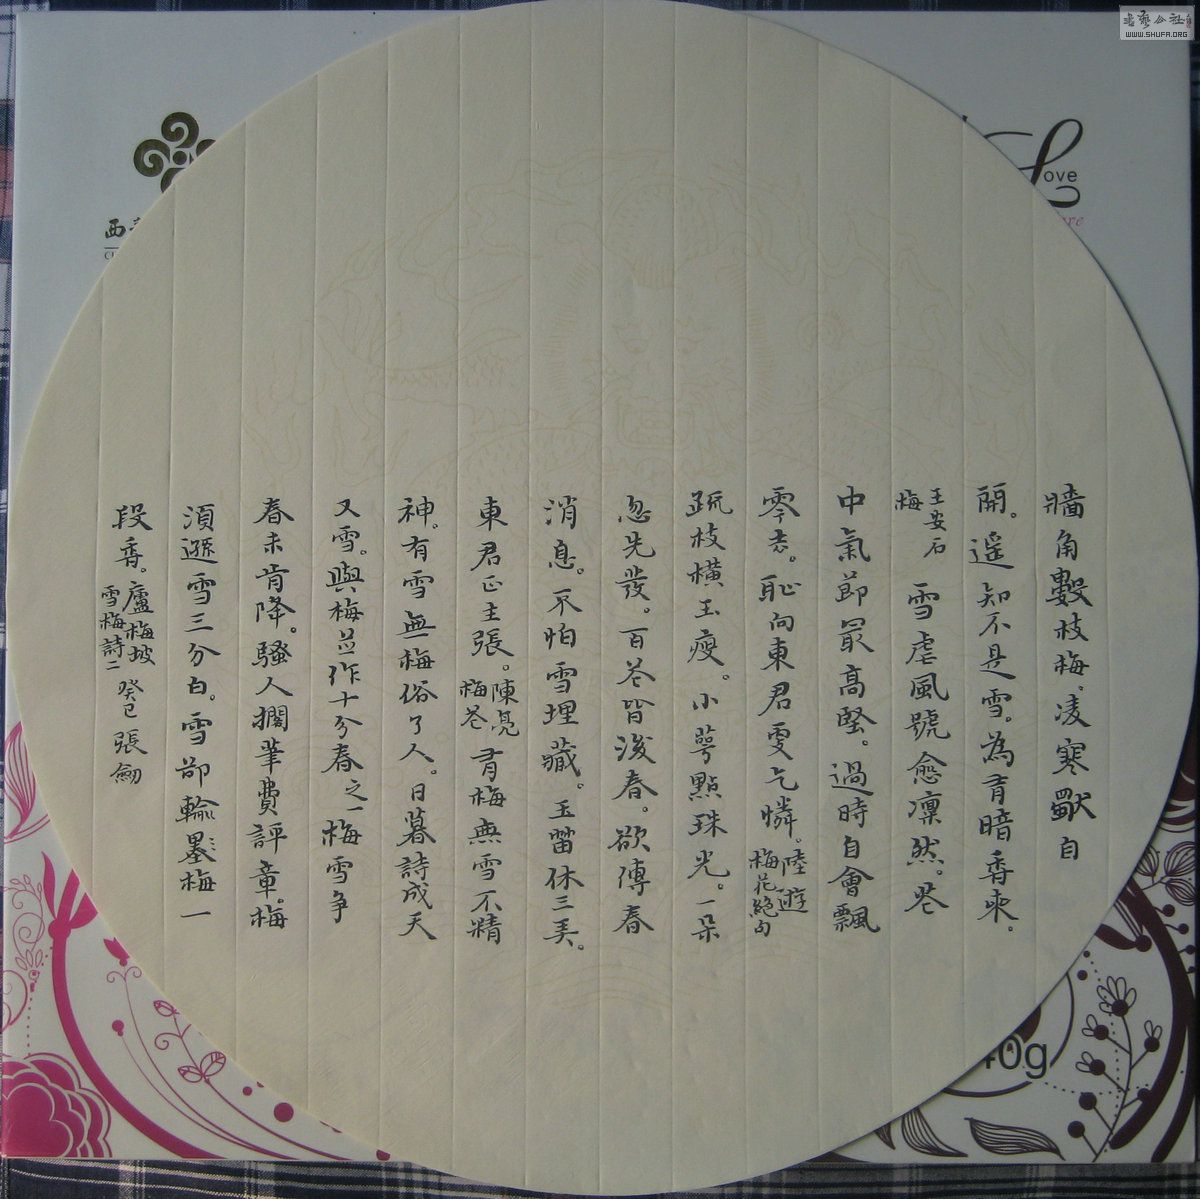 牆角數枝梅。凌寒獸自
開。遥知不是雪。為有暗香來。
王安石
梅
雪虐風號愈凜然。花
中氣節最高堅。過時自會飄
零去。恥向東君更乞憐。
陸遊
梅花絕句
疏枝橫玉瘦。小萼點珠光。一朵
忽先發。百花皆後春。欲傳春
消息。不怕雪埋藏。玉笛休三美。
東君正主張。
陳亮
梅花
有梅無雪不精
神。有雪無梅俗了人。日暮詩成天
又雪。與梅並作十分春之一梅雪爭
春未肯降。騷人擱筆費評章。梅
須遜雪三分白。雪卻輸墨梅一
段香。
盧梅坡
雪梅詩二
癸巳 張劍
書藝公社
WWW.SHUFA.ORG
Love
西